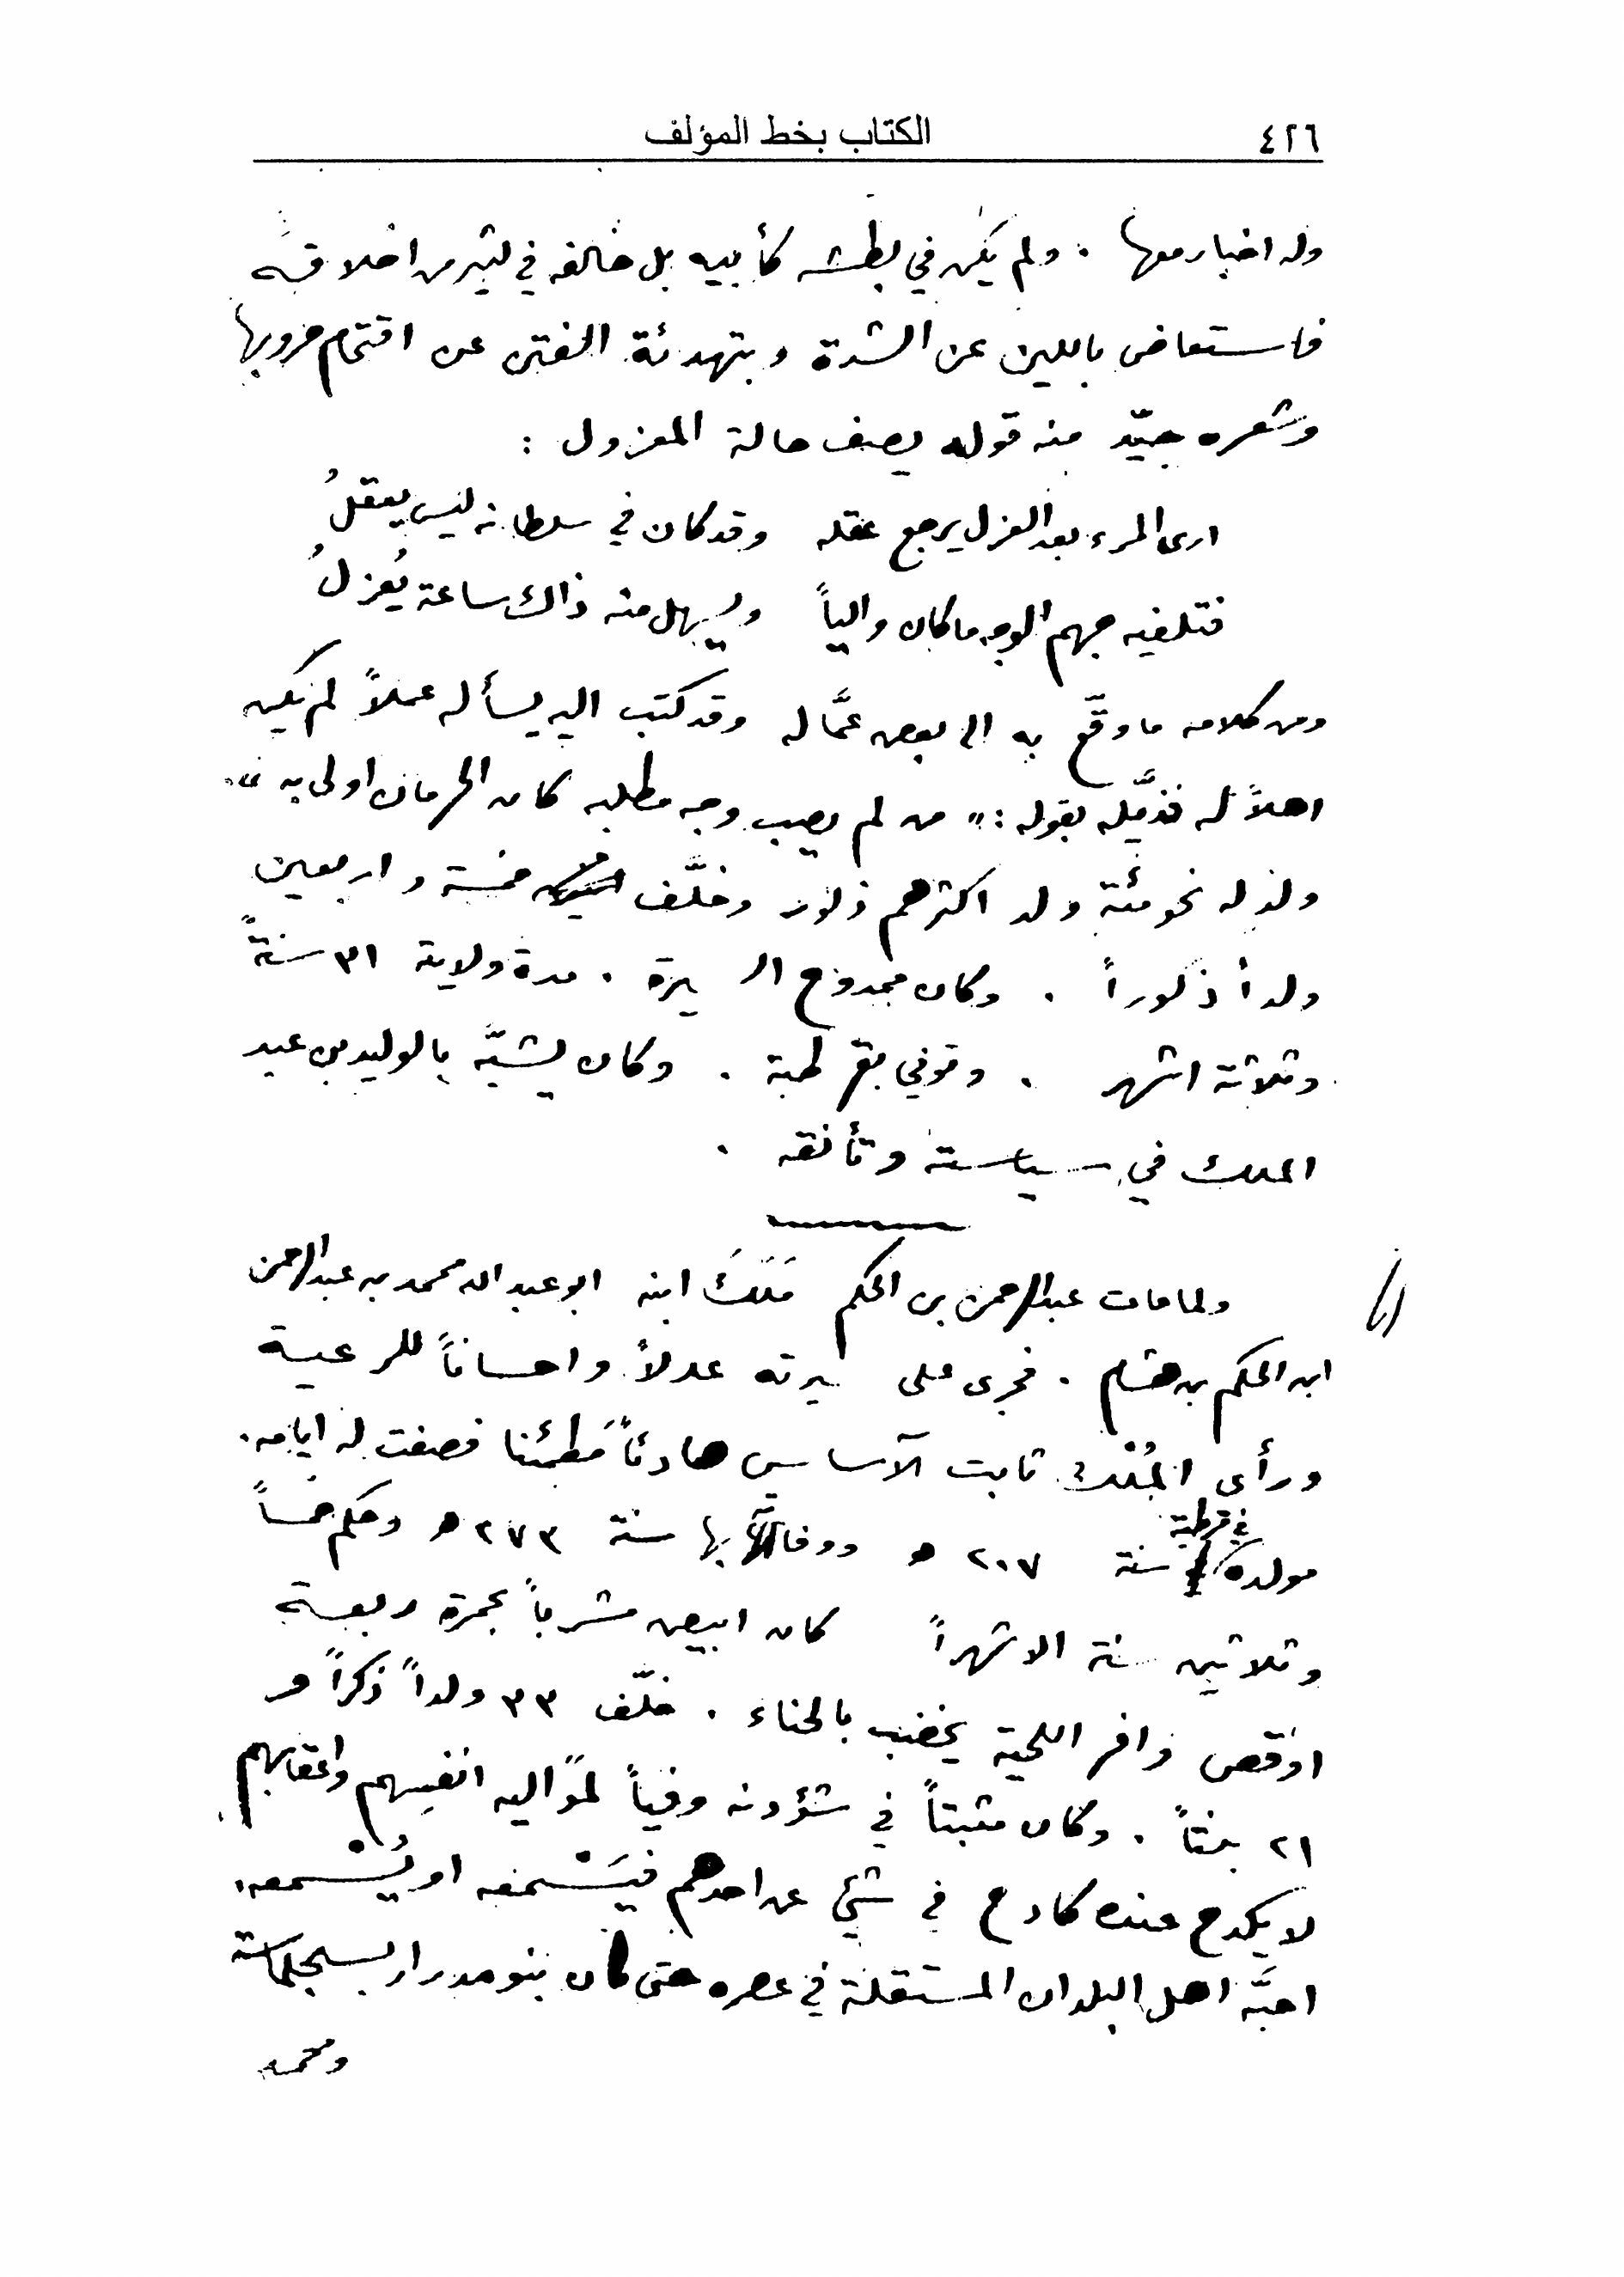 ٤٢٦ الكتاب بخط المؤلف
وله اخبار معها . ولم يكن في بطشه كأبيه بل خالفه في كثير من اخلاقه
فاستعاض باللين عن الشدة وبتهدئة الفتن عن اقتحام حروبها
وشعره جيّد منه قوله يصف حالة المعزول :
ارى المرء بعد العزل يرجع عقله وقد كان في سلطانه ليس يعقلُ
فتلفيه جهم الوجه ما كان والياً ويسهل منه ذاك ساعة يُعزلُ
ومن كلامه ما وقّع به الى بعض عمَّاله وقد كتب اليه يسأله عملاً لم يكن
اهلاً له فذيَّله بقوله : « من لم يصب وجه مطلبه كان الحرمان اولى به » .
ولد له نحو مئة ولد اكثرهم ذكور وخلَّف خمسة واربعين
ولداً ذكوراً . وكان ممدوح السيرة . مدة ولايته ٣١ سنةً
وثلاثة اشهر . وتوفي بقرطبة . وكان يشبَّه بالوليد بن عبد
الملك في سياسته وتأنقه .
ولما مات عبدالرحمن بن الحكم مَلَكَ ابنه ابو عبد الله محمد بن عبدالرحمن
ابن الحكم بن هشام . فجرى على سيرته عدلاً واحساناً للرعية
ورأى المُلْك ثابت الآساس هادئاً مُطمئنا فصفت له ايامه .
مولده في قرطبة سنة ٢٠٧ ه ووفاته بها سنة ٢٧٣ ه وحكم خمساً
وثلاثين سنة الا شهراً كان ابيض مشرباً بحمرة ربعة
اوقص وافر اللحية يخضب بالحناء . خلّف ٣٣ ولداً ذكراً و
٢١ بنتاً . وكان مثبتاً في شؤونه وفياً لمَواليه انفسِهم واعقابهم
لا يكدح عنده كادح في شيء عن احدهم فيَسْمعه او يُسْمعه .
احبَّه اهل البلدان المستقلة في عصره حتى كان بنو مدرار بسجلماسة
ومحمد